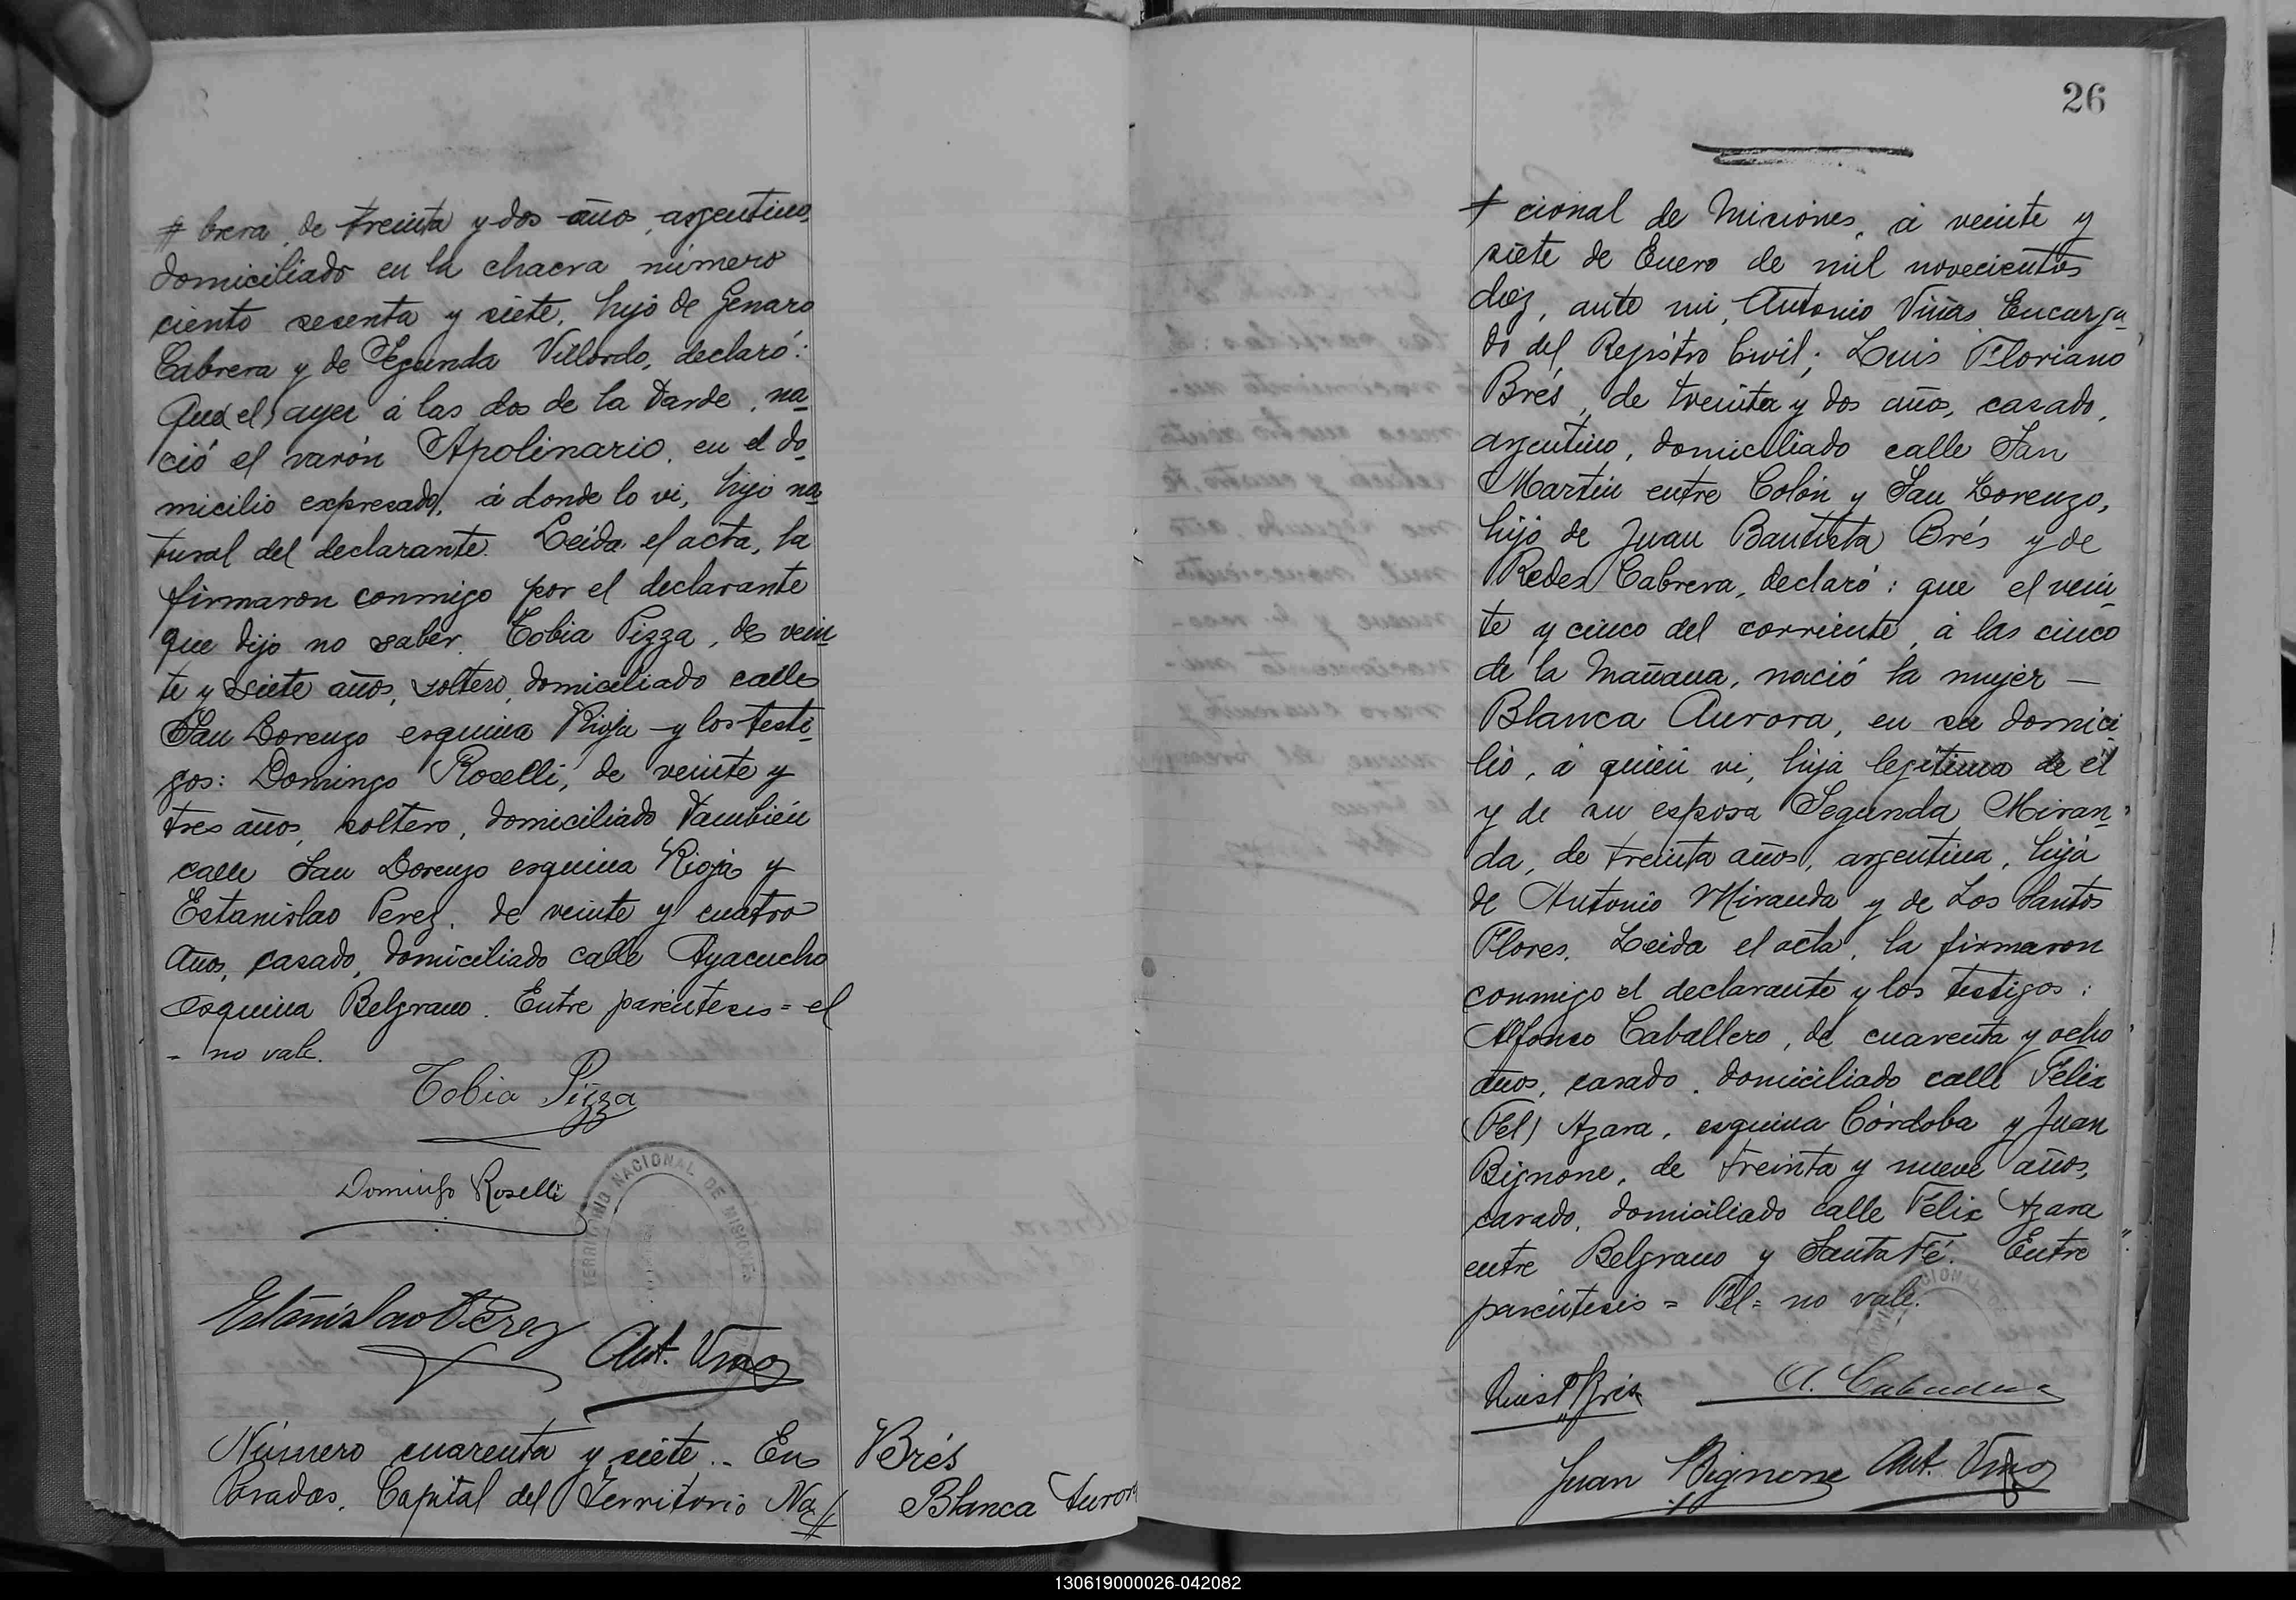 # brera, de treinta y dos años, argentino,
domiciliado en la chacra número
ciento sesenta y siete, hijo de Genaro
Cabrera y de Segunda Villordo, declaró:
Que (el) ayer á las dos de la tarde, na-
ció el varón Apolinario, en el do-
micilio expresado, á donde lo vi, hijo na-
tural del declarante. Leida el acta, la
firmaron conmigo por el declarante
que dijo no saber, Tobia Pizza, de vein-
te y siete años, soltero, domiciliado calle
San Lorenzo esquina Rioja y los testi-
gos: Domingo Roselli, de veinte y
tres años, soltero, domiciliado también
calle San Lorenzo esquina Rioja y
Estanislao Perez, de veinte y cuatro
años, casado, domiciliado calle Ayacucho
esquina Belgrano. Entre paréntesis = el
= no vale.
Tobia Pizza
Domingo Roselli
TERRITORIO NACIONAL DE MISIONES
Estanislao Perez
Ant. Viñas
Número cuarenta y siete.. En
Posadas, Capital del Territorio Na#
Brés
Blanca Aurora
26
# cional de Misiones, á veinte y
siete de Enero de mil novecientos
diez, ante mi, Antonio Viñas Encarga-
do del Registro Civil; Luis Floriano
Brés, de treinta y dos años, casado,
argentino, domiciliado calle San
Martin entre Colón y San Lorenzo,
hijo de Juan Bautista Brés y de
Redes Cabrera, declaró: que el vein-
te y cinco del corriente, á las cinco
de la mañana, nació la mujer —
Blanca Aurora, en su domici-
lio, á quién vi, hija legítima de él
y de su esposa Segunda Miran-
da, de treinta años, argentina, hija
de Antonio Miranda y de Los Santos
Flores. Leida el acta, la firmaron
conmigo el declarante y los testigos:
Alfonso Caballero, de cuarenta y ocho
años, casado, domiciliado calle Felix
(Fel) Azara, esquina Córdoba y Juan
Bignone, de treinta y nueve años,
casado, domiciliado calle Félix Azara
entre Belgrano y Santa Fé. Entre
paréntesis = Fel = no vale.
Luis F. Brés
A. Caballero
Juan Bignone
Ant. Viñas
130619000026-042082